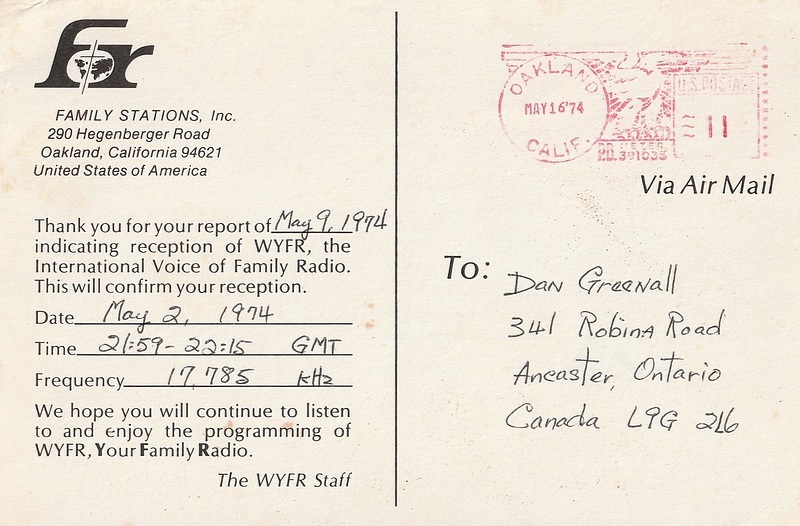 fr
FAMILY STATIONS, Inc.
290 Hegenberger Road
Oakland, California 94621
United States of America
Thank you for your report of May 9, 1974
indicating reception of WYFR, the
International Voice of Family Radio.
This will confirm your reception.
Date May 2, 1974
Time 21:59-22:15 GMT
Frequency 17,785 kHz
We hope you will continue to listen
to and enjoy the programming of
WYFR, Your Family Radio.
The WYFR Staff
OAKLAND
MAY16'74
CALIF.
U.S. POSTAGE
11
PB METER
P.B. 391033
Via Air Mail
To:
Dan Greenall
341 Robina Road
Ancaster, Ontario
Canada L9G 2L6